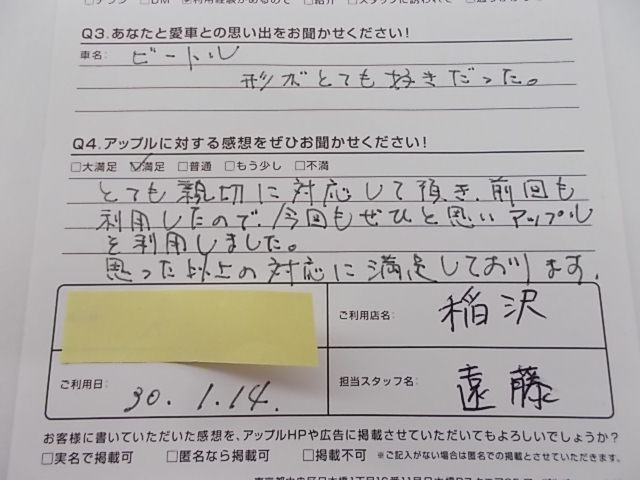 □チラシ □DM ☑利用経験があるので □紹介 □スタッフに誘われて
Q3.あなたと愛車との思い出をお聞かせください!
車名: ビートル
形がとても好きだった。
Q4.アップルに対する感想をぜひお聞かせください!
□大満足 ☑満足 □普通 □もう少し □不満
とても親切に対応して頂き、前回も
利用したので、今回もぜひと思いアップル
を利用しました。
思った以上の対応に満足しております.
ご利用店名: 稲沢
ご利用日: 30.1.14.
担当スタッフ名: 遠藤
お客様に書いていただいた感想を、アップルHPや広告に掲載させていただいてもよろしいでしょうか?
□実名で掲載可 □匿名なら掲載可 □掲載不可 ※ご記入がない場合は匿名での掲載とさせていただきます。